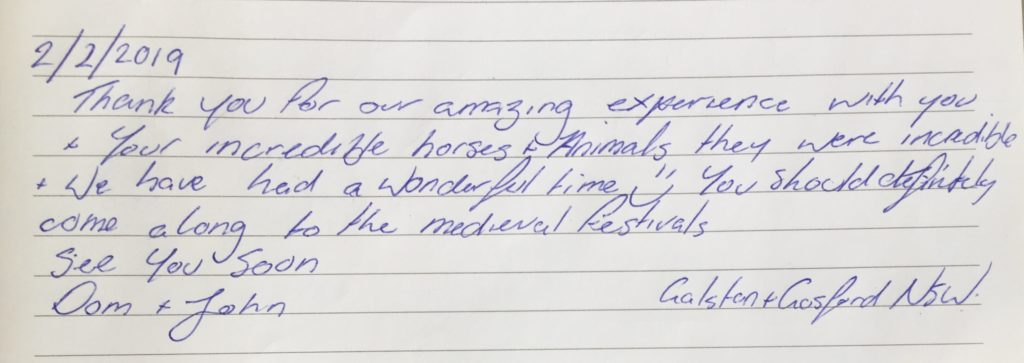 2/2/2019
Thank you for our amazing experience with you
+ Your incredible horses + Animals they were incredible
+ We have had a wonderful time :) You should definitely
come along to the medieval festivals
See You Soon
Dom + John
Galston + Gosford NSW.